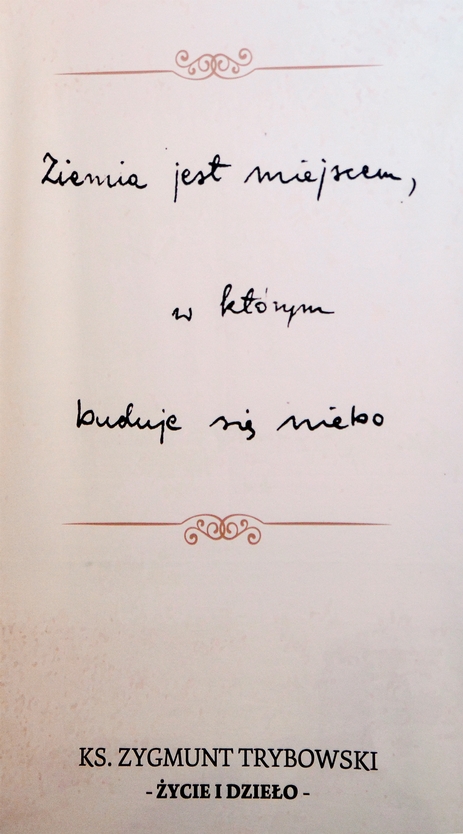 Ziemia jest miejscem,
w którym
buduje się niebo
KS. ZYGMUNT TRYBOWSKI
- ŻYCIE I DZIEŁO -